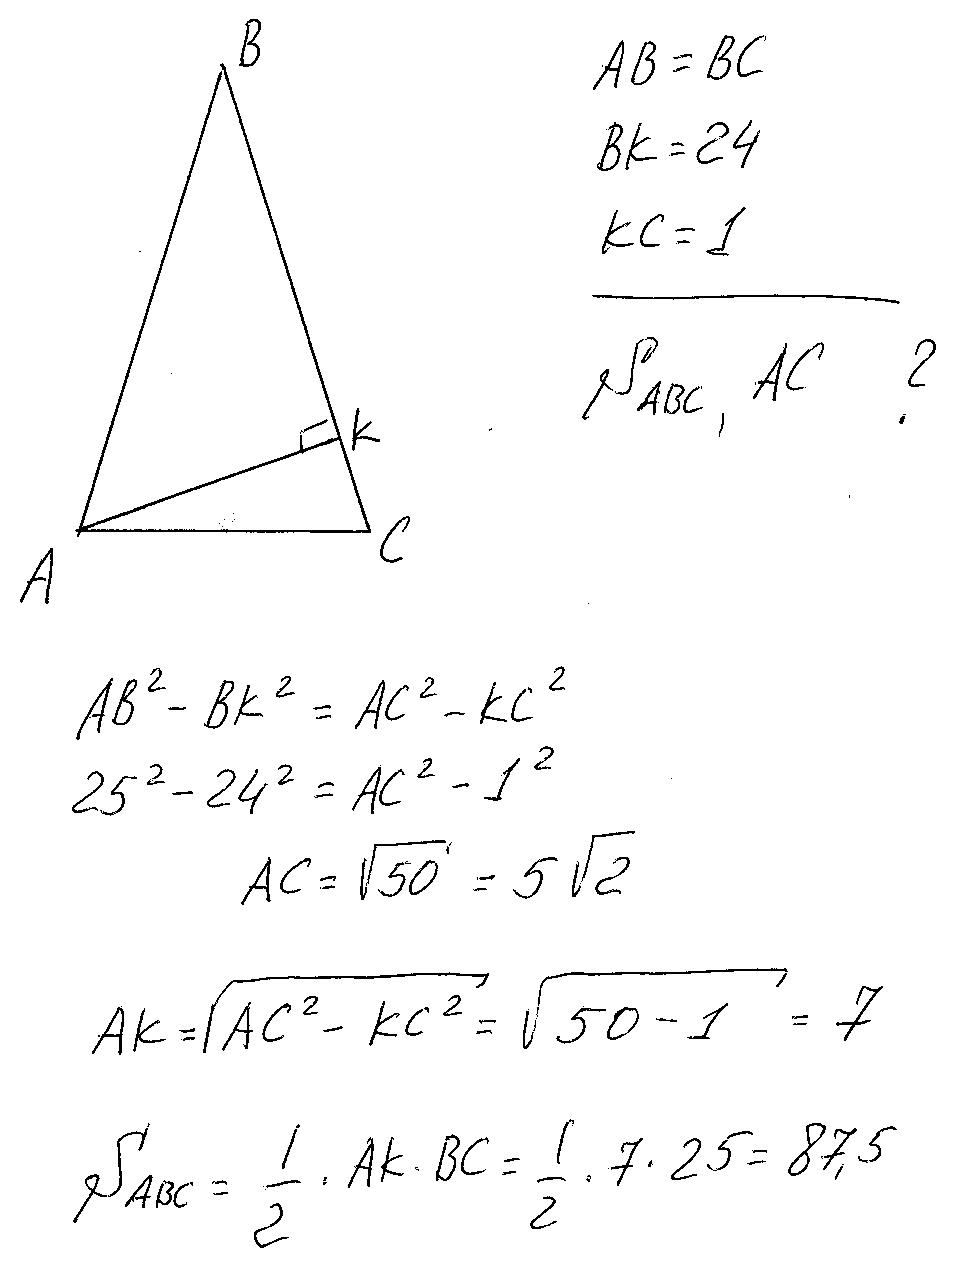 B
AB = BC
BK = 24
KC = 1
S_ABC, AC ?
K
A
C
AB² - BK² = AC² - KC²
25² - 24² = AC² - 1²
AC = √50 = 5√2
AK = √(AC² - KC²) = √(50 - 1) = 7
S_ABC = 1/2 · AK · BC = 1/2 · 7 · 25 = 87,5